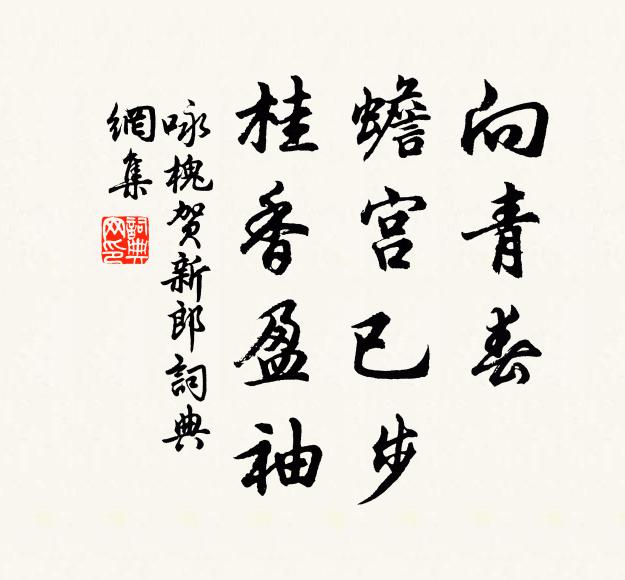 向青春
蟾宫已步
桂香盈袖
咏槐贺新郎詞典
網集
詞典
网印